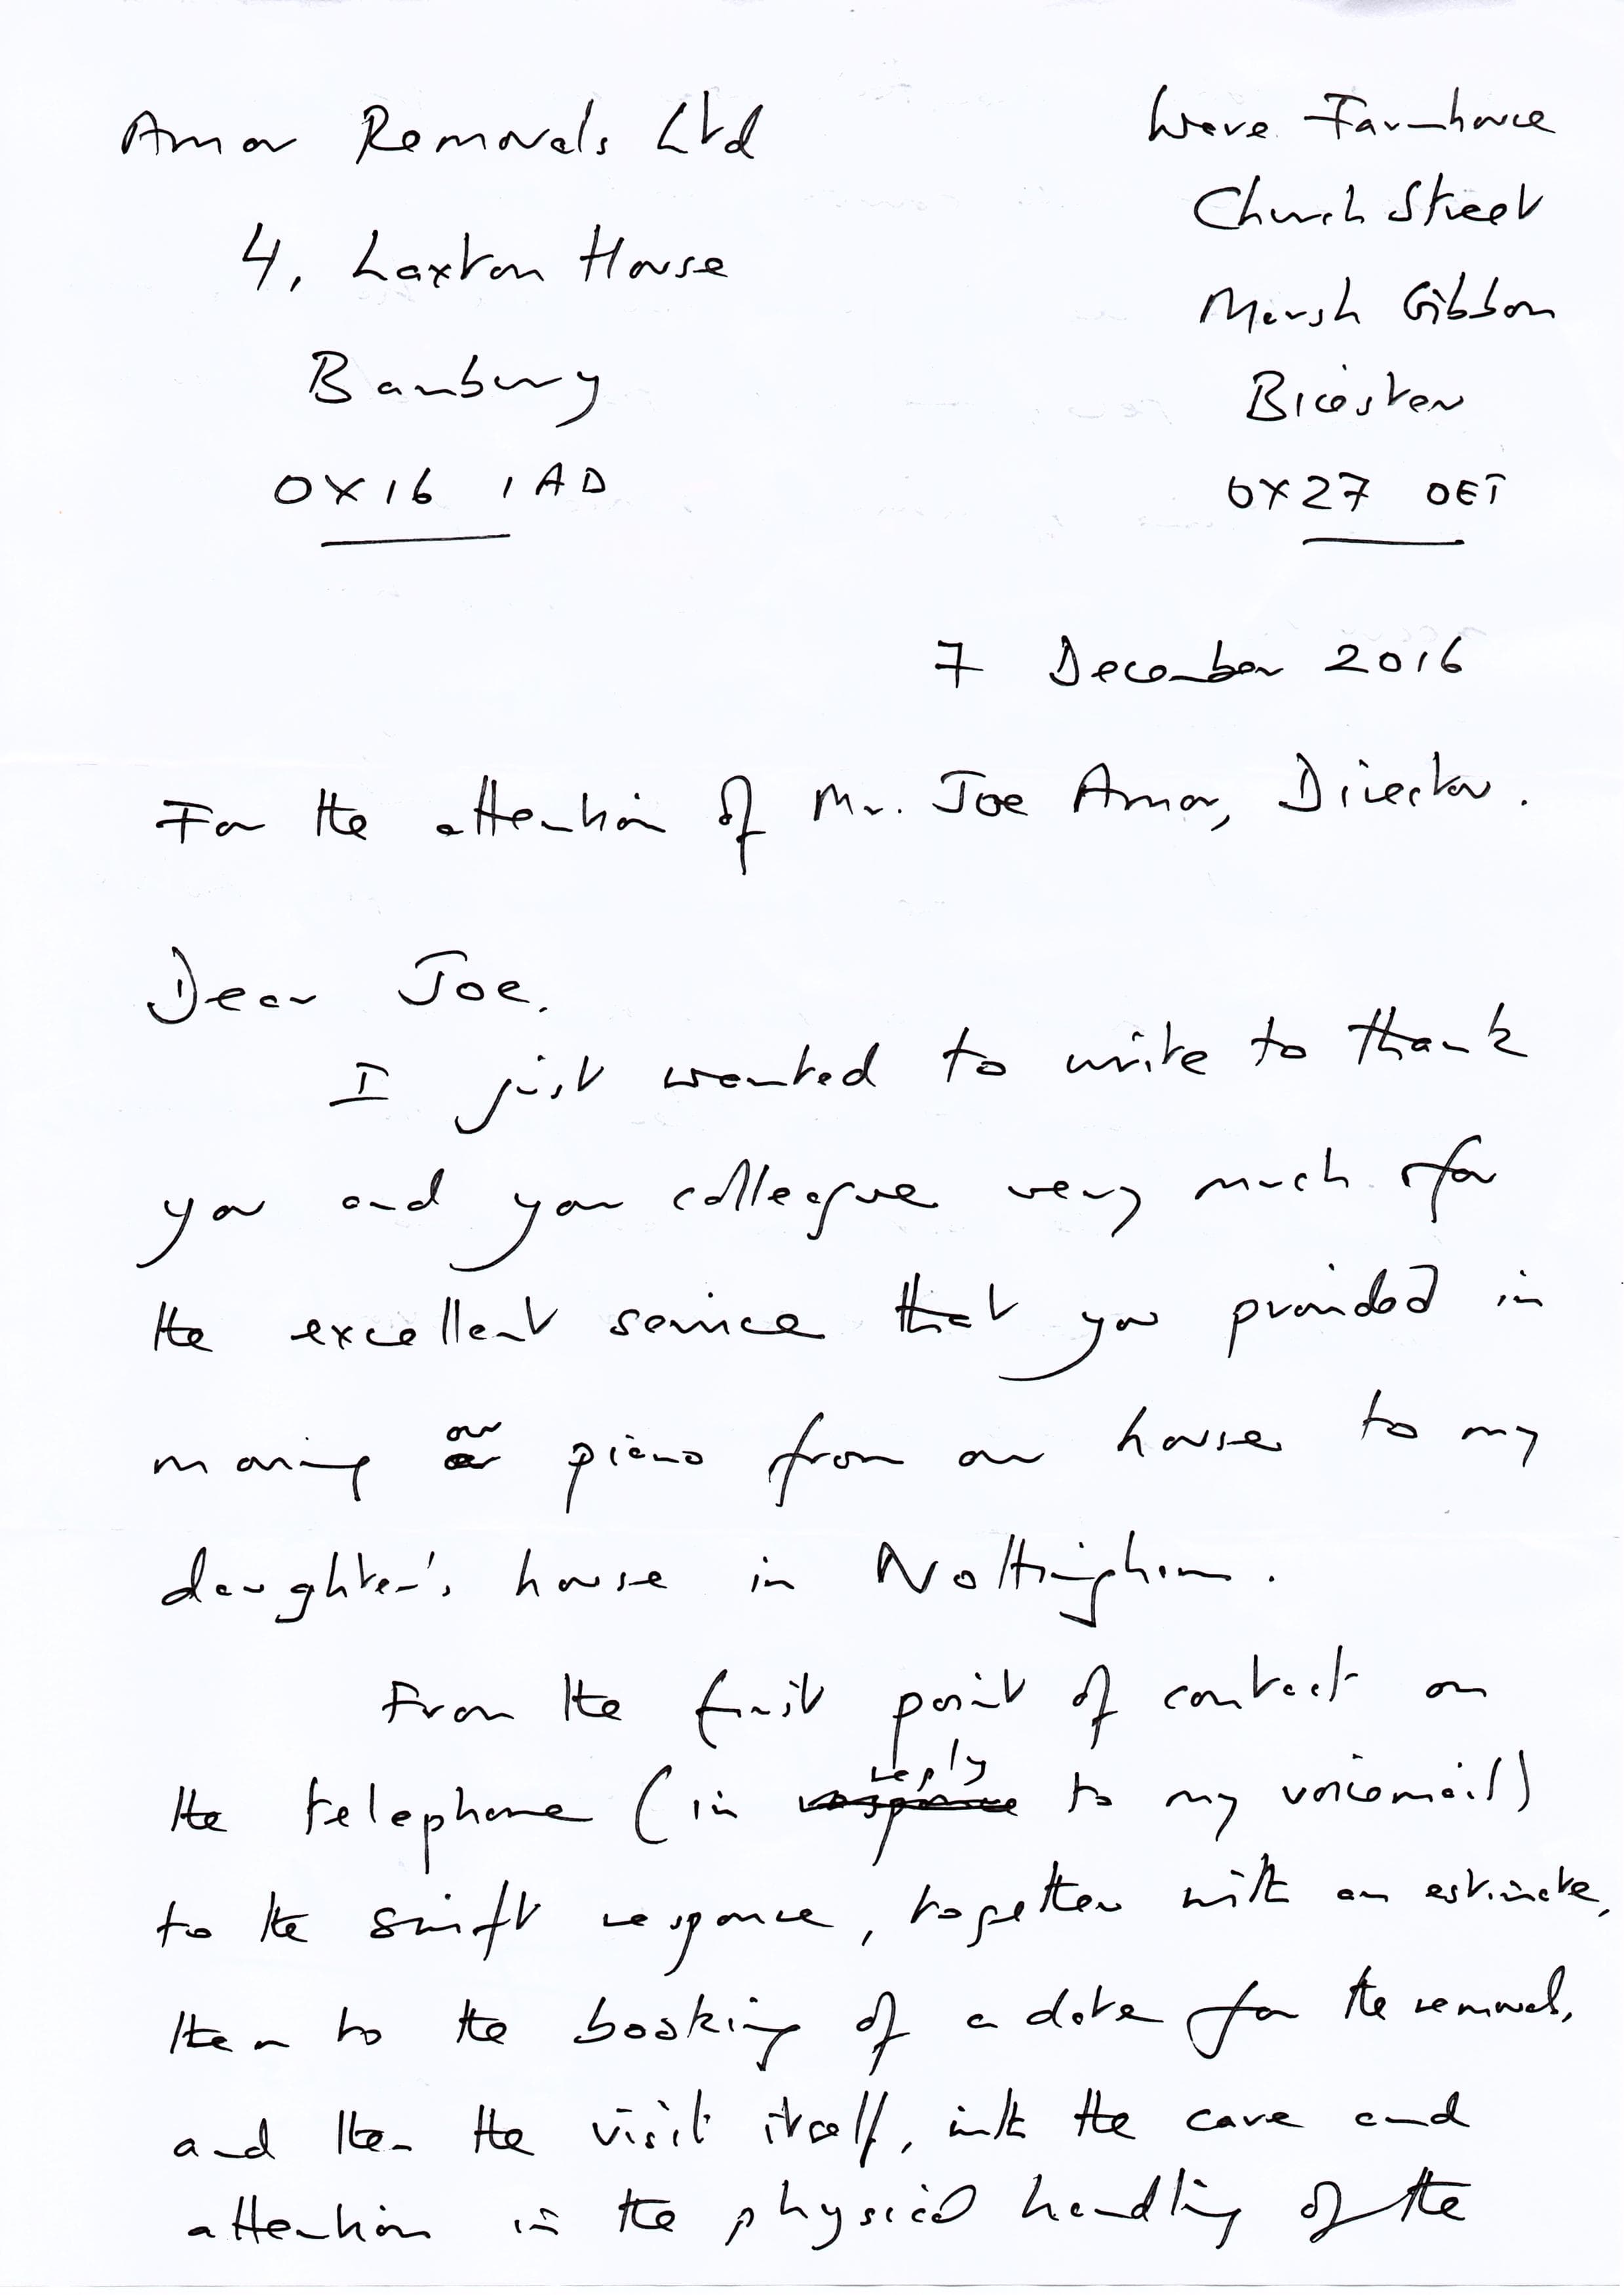 Amor Removals Ltd
4, Laxton House
Banbury
OX16 1AD
Ware Farmhouse
Church Street
Marsh Gibbon
Bicester
OX27 0ET
7 December 2016
For the attention of Mr. Joe Amor, Director.
Dear Joe,
I just wanted to write to thank
you and your colleague very much for
the excellent service that you provided in
moving our piano from our house to my
daughter's house in Nottingham.
From the first point of contact on
the telephone (in response reply to my voicemail)
to the swift response, together with an estimate,
then to the booking of a date for the removal,
and then the visit itself, with the care and
attention in the physical handling of the